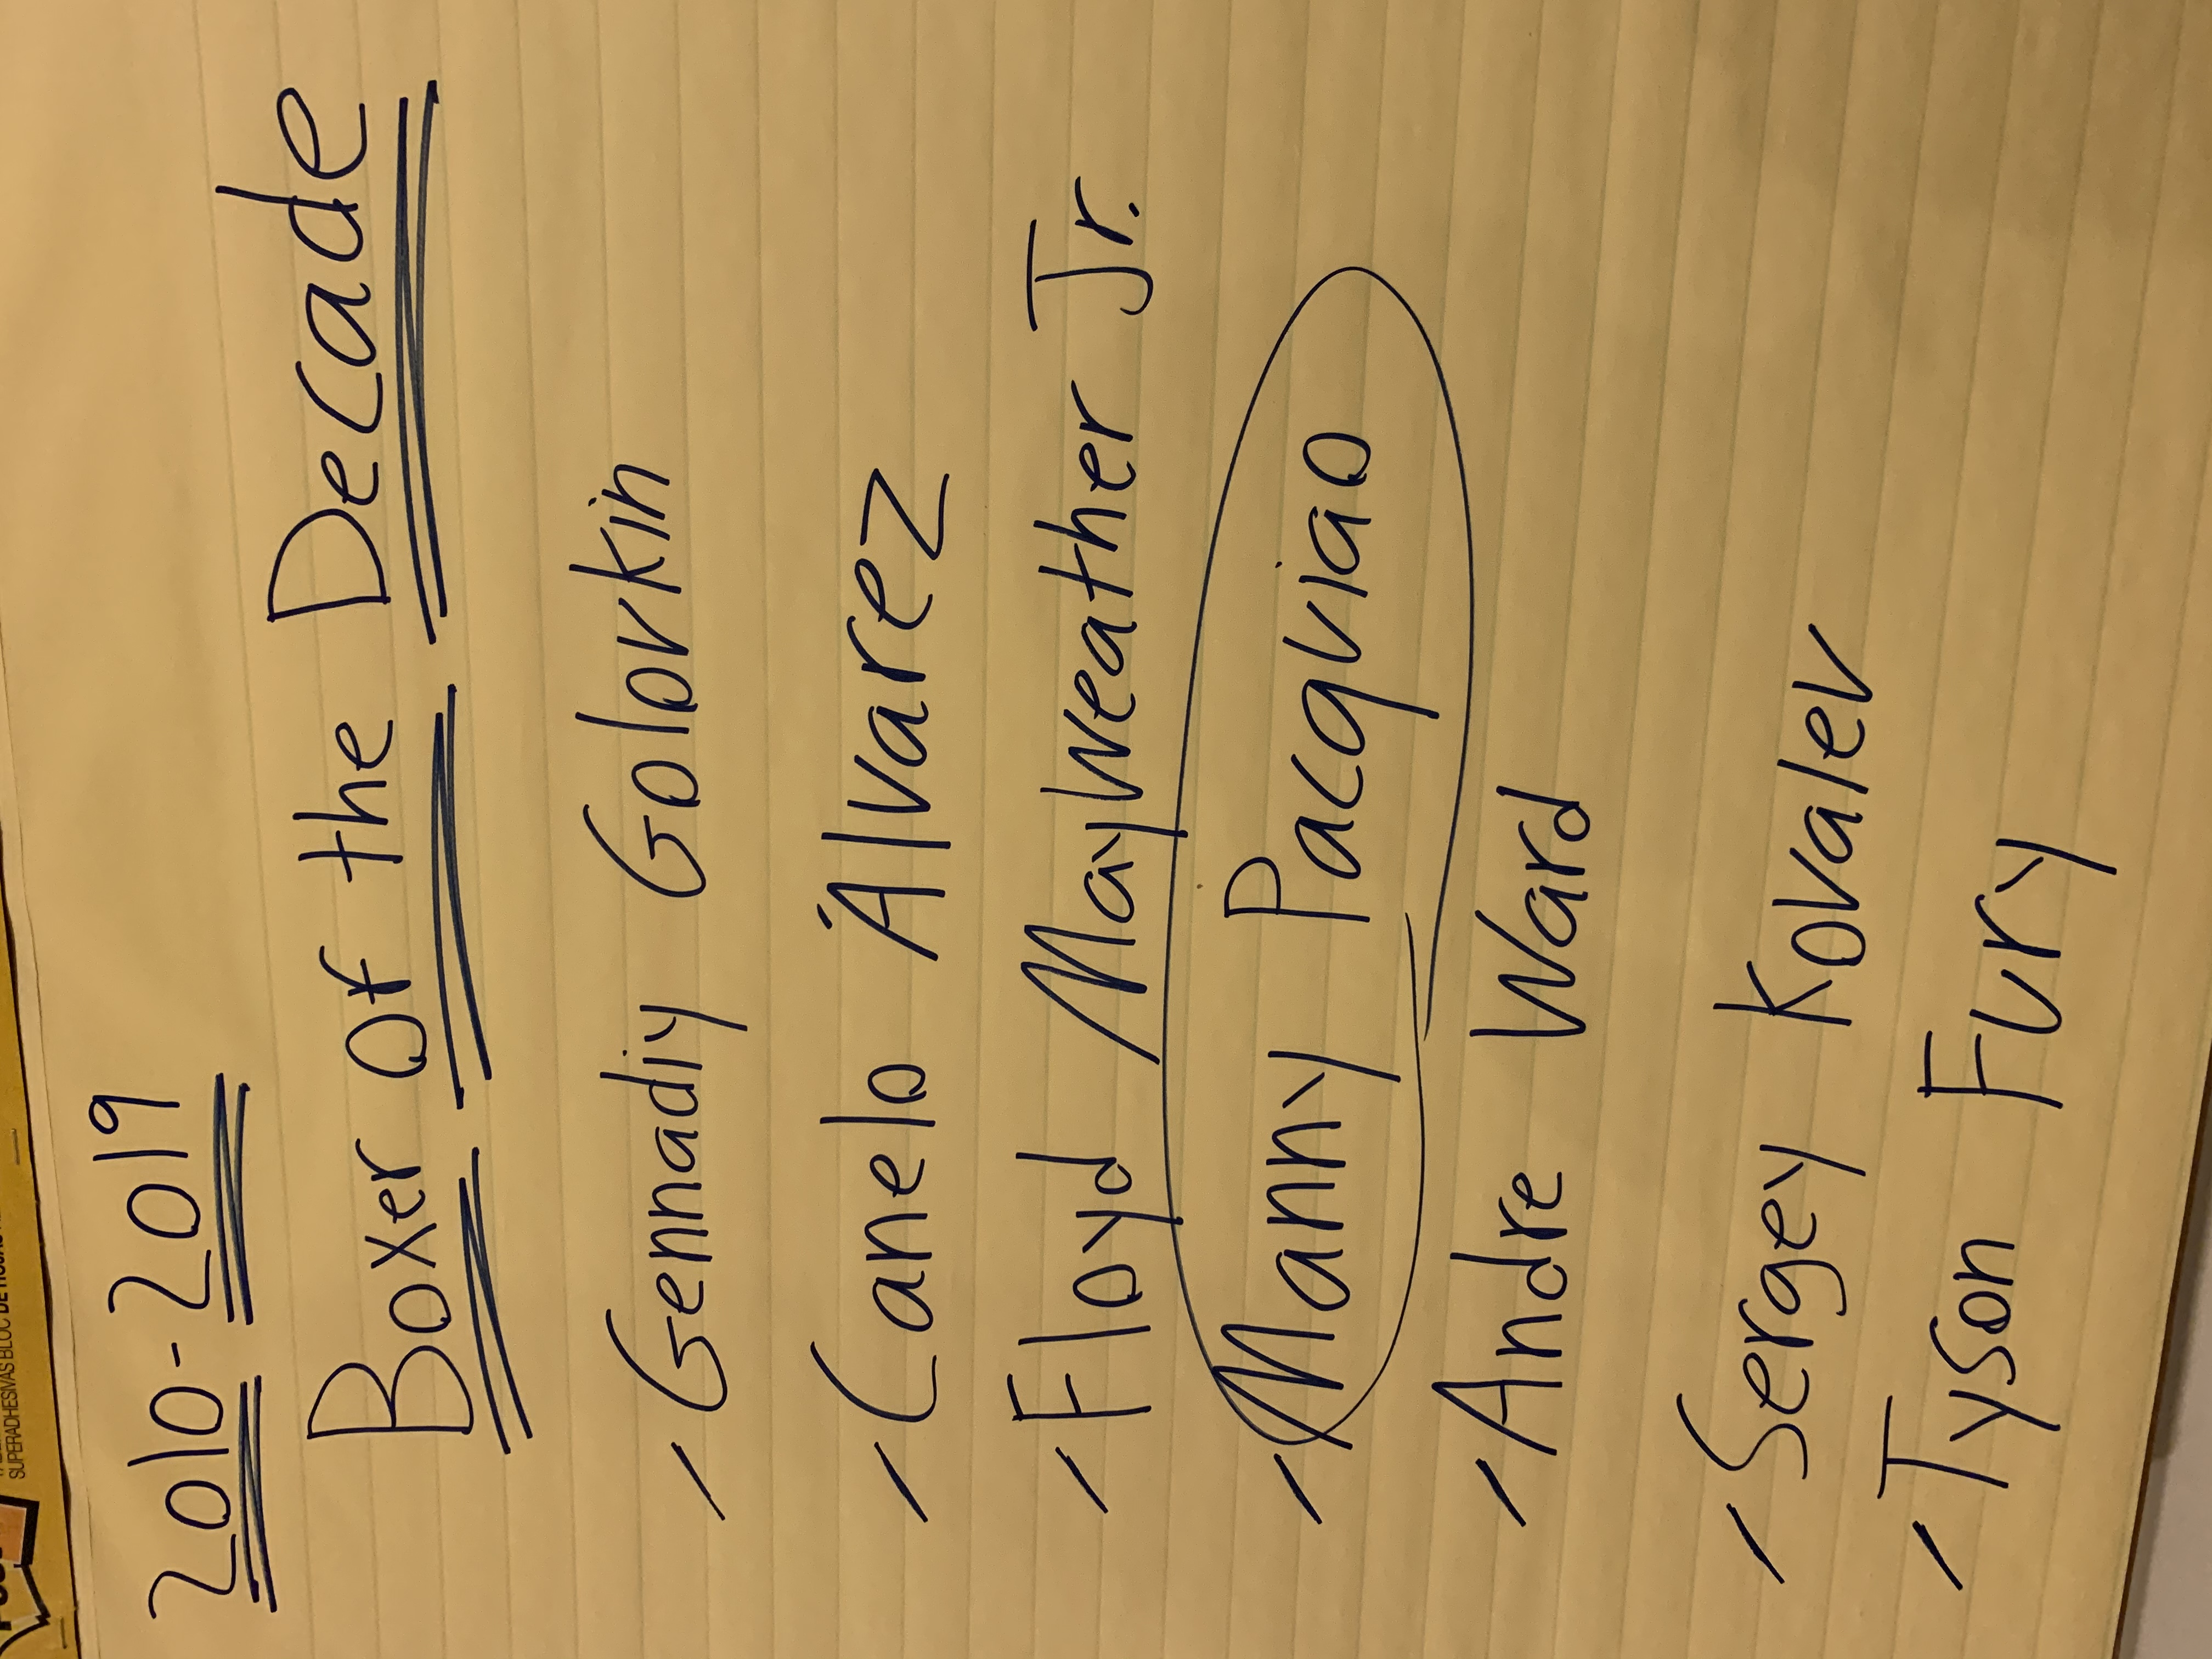 SUPERADHESIVAS BLOC DE HOJAS
2010-2019
Boxer of the Decade
- Gennadiy Golovkin
- Canelo Álvarez
- Floyd Mayweather Jr.
- Manny Pacquiao
- Andre Ward
- Sergey Kovalev
- Tyson Fury